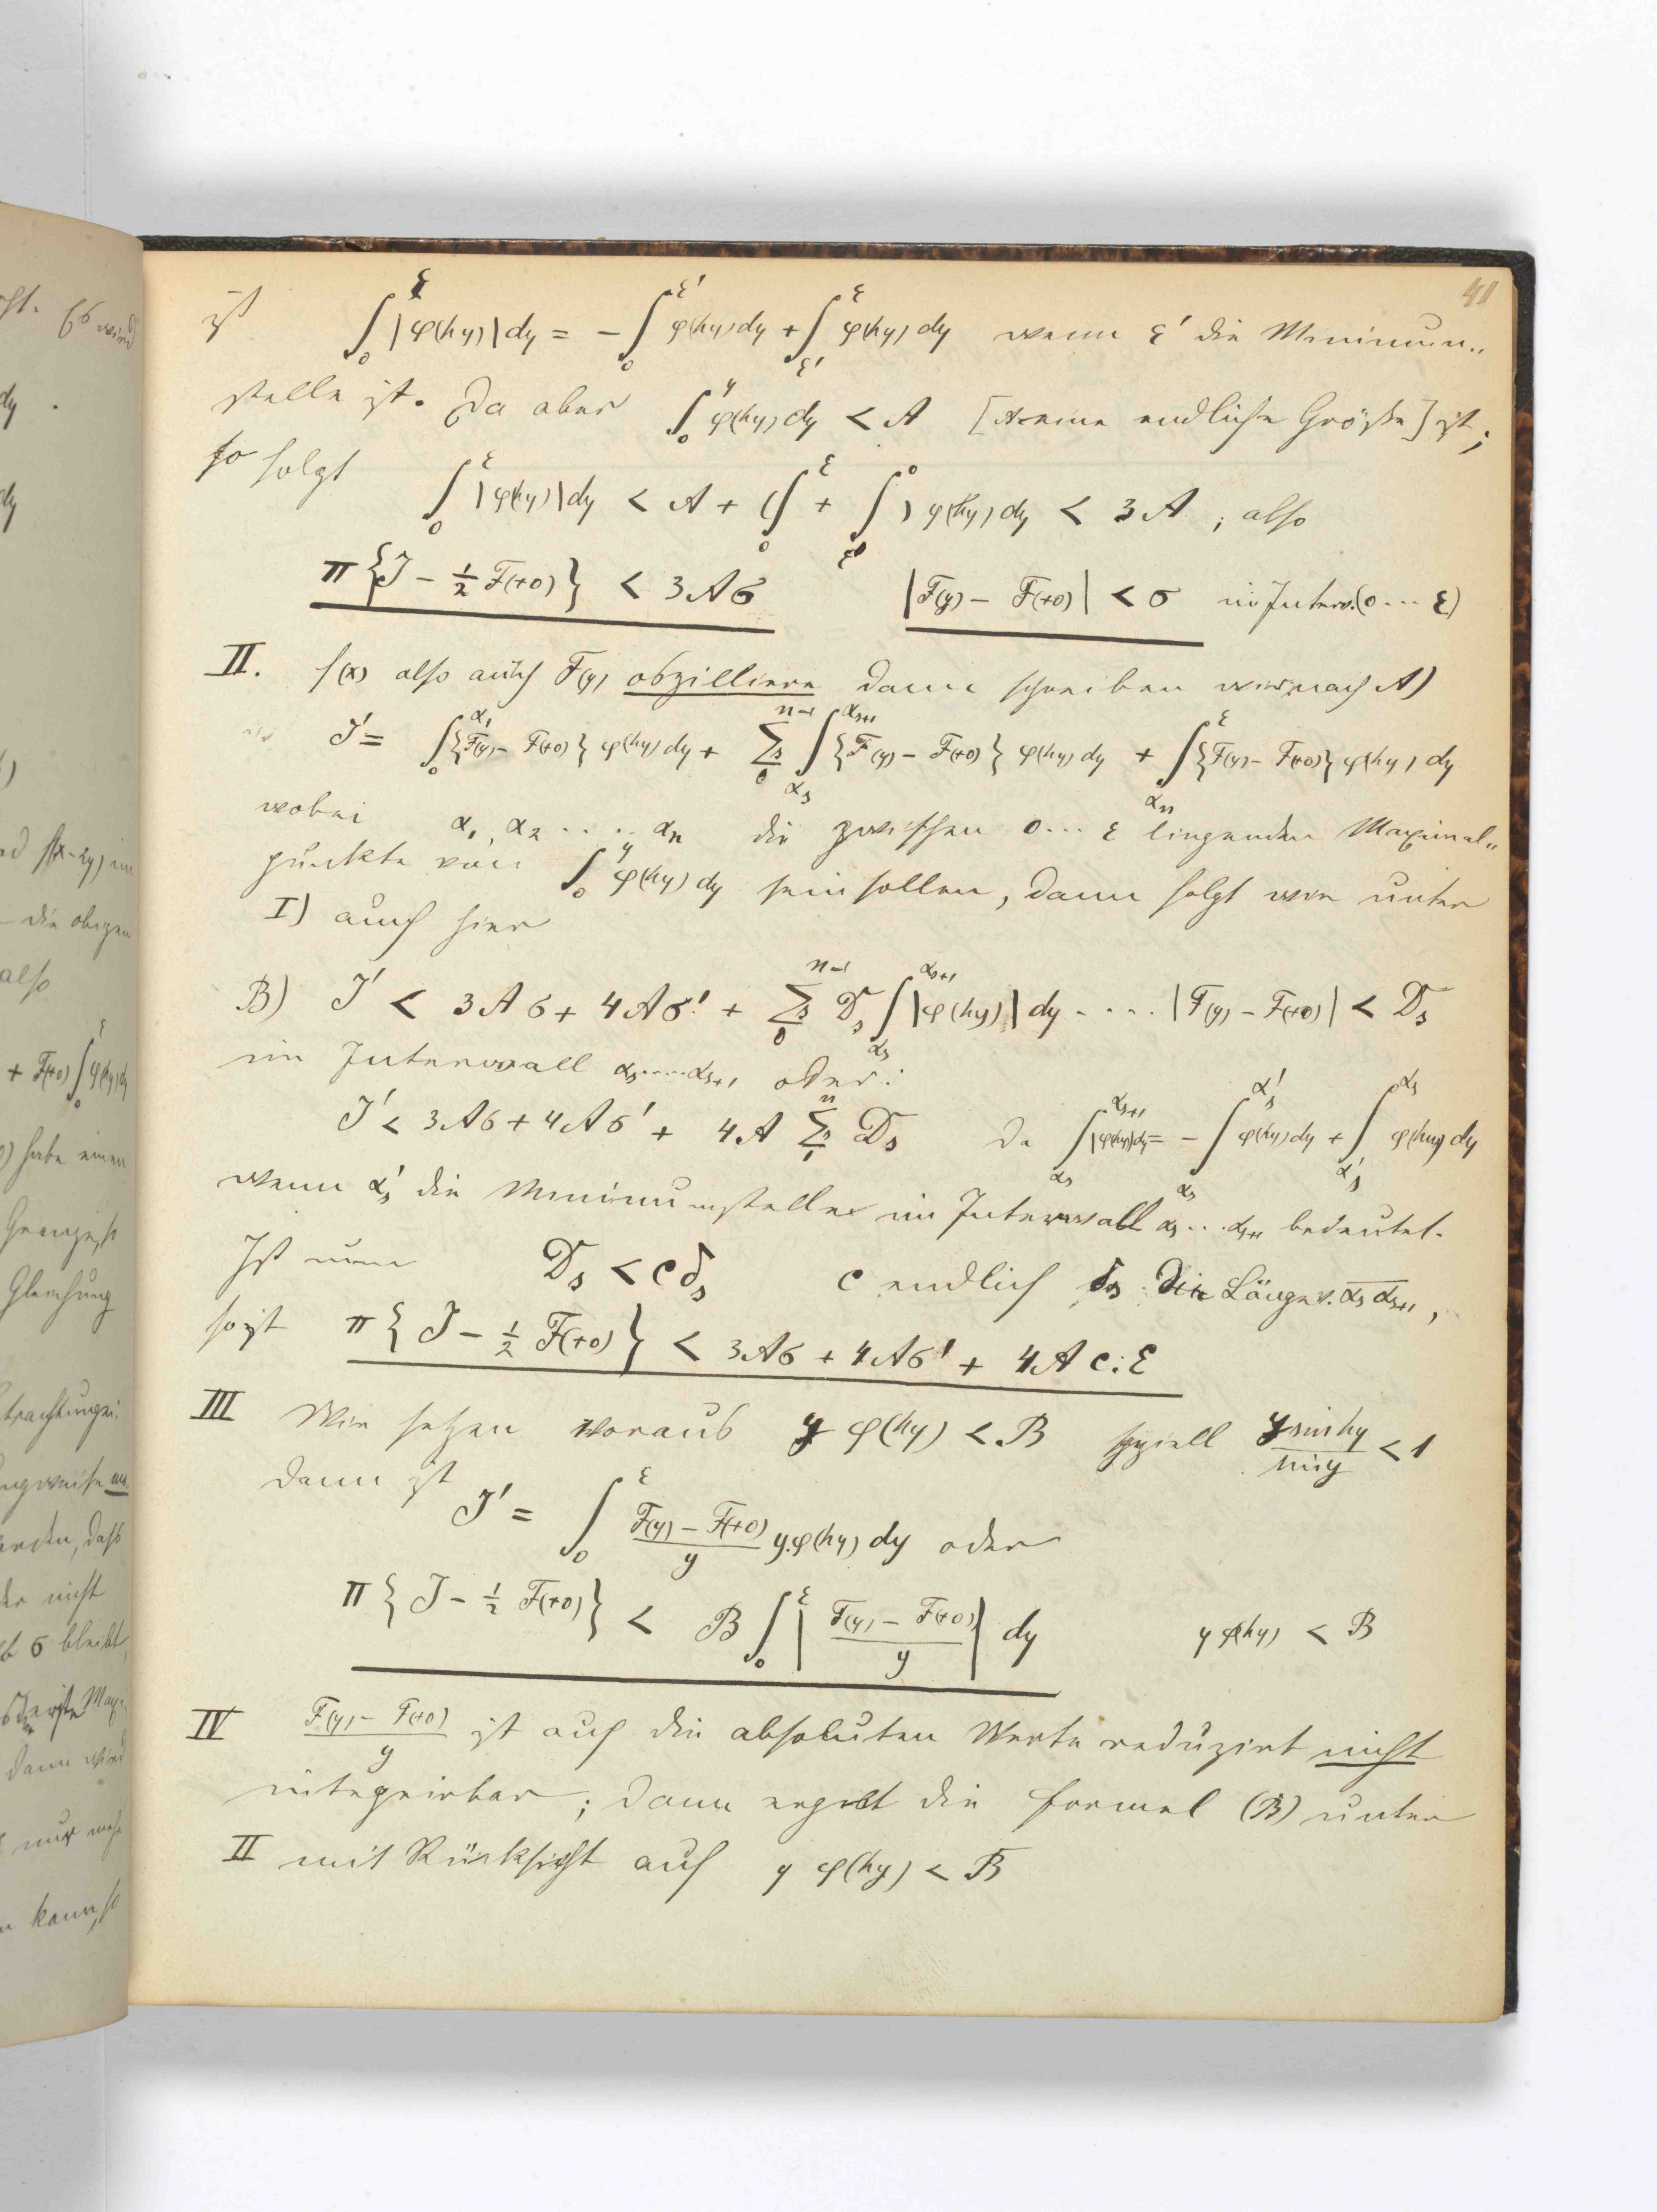 41
ist ∫₀^ε |φ(hy)| dy = − ∫₀^ε′ φ(hy) dy + ∫_ε′^ε φ(hy) dy wenn ε′ die Minimum„
stelle ist. Da aber ∫₀^y φ(hy) dy < A [A eine endliche Größe] ist;
so folgt ∫₀^ε |φ(hy)| dy < A + (∫₀^ε + ∫_ε′^0) φ(hy) dy < 3A ; also
π{J − ½ F(+0)} < 3Aσ |F(y) − F(+0)| < σ im Interv.(0 ... ε)
II. f(x) also auch F(y) obzilliere dann schreiben wir nach A)
J′ = ∫₀^α₁ {F(y) − F(+0)} φ(hy) dy + Σs₀^n−1 ∫_αs^αs+1 {F(y) − F(+0)} φ(hy) dy + ∫_αn^ε {F(y) − F(+0)} φ(hy) dy
wobei α₁, α₂ .... αn die zwischen 0 ... ε liegenden Maximal„
punkte von ∫₀^y φ(hy) dy sein sollen, dann folgt wie unter
I) auch hier
B) J′ < 3Aσ + 4Aσ′ + Σs₀^n−1 Ds ∫_αs^αs+1 |φ(hy)| dy ..... |F(y) − F(+0)| < Ds
im Intervall αs.....αs+1 oder:
J′ < 3Aσ + 4Aσ′ + 4A Σs₁^n Ds Da ∫_αs^αs+1 |φ(hy)| dy = − ∫_αs^α′s φ(hy) dy + ∫_α′s^αs φ(hy) dy
wenn α′s die Minimumstelle im Intervall αs ... αs+1 bedeutet.
Ist nun Ds < cδs c endlich δs die Länge v. αs αs+1,
so ist π{J − ½ F(+0)} < 3Aσ + 4Aσ′ + 4A c.ε
III Wir setzen voraus y φ(hy) < B speziell y sin hy / sin y < 1
dann ist J′ = ∫₀^ε (F(y) − F(+0))/y y.φ(hy) dy oder
π{J − ½ F(+0)} < B ∫₀^ε |(F(y) − F(+0))/y| dy y φ(hy) < B
IV (F(y) − F(+0))/y ist auf die absoluten Werte reduzirt nicht
integrirbar; dann ergibt die Formel (B) unter
II mit Rücksicht auf y φ(hy) < B